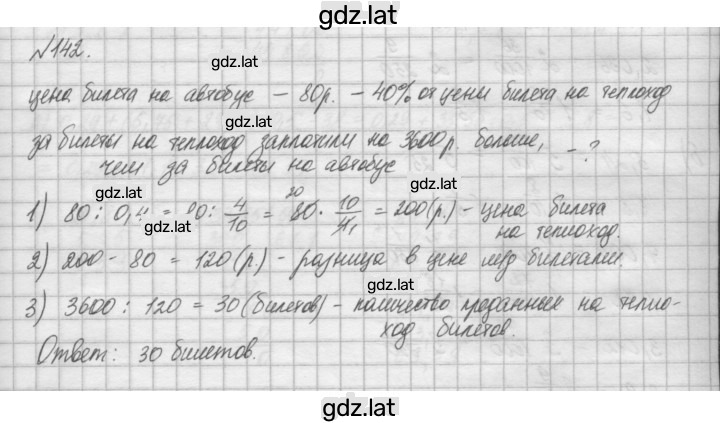 gdz.lat
№142.
gdz.lat
цена билета на автобус – 80р. – 40% от цены билета на теплоход
gdz.lat
за билеты на теплоход заплатили на 3600р. больше, – ?
чем за билеты на автобус
gdz.lat
1) 80 : 0,4 = 80 : 4/10 = 80 20 · 10/4 1 = 200(р.) – цена билета
gdz.lat
на теплоход.
2) 200 – 80 = 120(р.) – разница в цене м/д билетами.
3) 3600 : 120 = 30(билетов) – количество проданных на тепло-
gdz.lat
ход билетов.
Ответ: 30 билетов.
gdz.lat